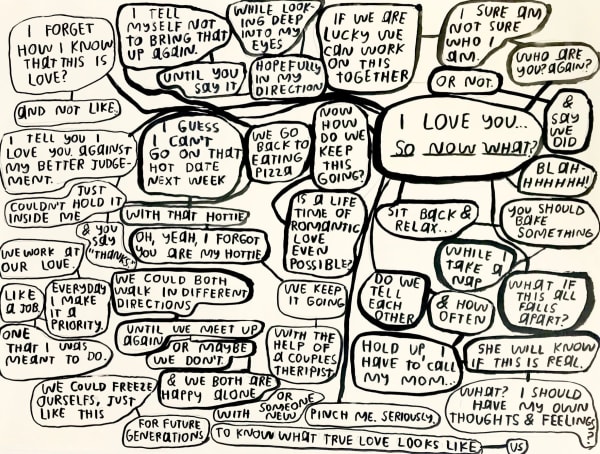 I FORGET
HOW I KNOW
THAT THIS IS
LOVE?
AND NOT LIKE.
I TELL YOU I
LOVE YOU AGAINST
MY BETTER JUDGE-
MENT.
JUST
COULDN'T HOLD IT
INSIDE ME
& YOU
SAY
"THANKS"
WE WORK AT
OUR LOVE.
LIKE
A JOB.
EVERYDAY
I MAKE
IT A
PRIORITY.
ONE
THAT I WAS
MEANT TO DO.
I TELL
MYSELF NOT
TO BRING THAT
UP AGAIN.
UNTIL YOU
SAY IT
WHILE LOOK-
ING DEEP
INTO MY
EYES
HOPEFULLY
IN MY
DIRECTION
IF WE ARE
LUCKY WE
CAN WORK
ON THIS
TOGETHER
I SURE AM
NOT SURE
WHO I
AM.
OR NOT.
WHO ARE
YOU? AGAIN?
& SAY
WE
DID
BLAH-
HHHHHH!
I LOVE YOU...
SO NOW WHAT?
I GUESS
I CAN'T
GO ON THAT
HOT DATE
NEXT WEEK
WITH THAT HOTTIE
OH, YEAH, I FORGOT
YOU ARE MY HOTTIE
WE GO
BACK TO
EATING
PIZZA
NOW
HOW
DO WE
KEEP
THIS
GOING?
IS A LIFE
TIME OF
ROMANTIC
LOVE
EVEN
POSSIBLE?
WE KEEP
IT GOING
WITH THE
HELP OF
A COUPLES
THERIPIST
SIT BACK &
RELAX...
WHILE I
TAKE A
NAP
YOU SHOULD
BAKE
SOMETHING
WHAT IF
THIS ALL
FALLS
APART?
DO WE
TELL
EACH
OTHER
& HOW
OFTEN
HOLD UP, I
HAVE TO CALL
MY MOM...
SHE WILL KNOW
IF THIS IS REAL.
WHAT? I SHOULD
HAVE MY OWN
THOUGHTS & FEELINGS
?
WE COULD BOTH
WALK IN DIFFERENT
DIRECTIONS
UNTIL WE MEET UP
AGAIN
OR MAYBE
WE DON'T.
& WE BOTH ARE
HAPPY ALONE
OR
WITH SOMEONE
NEW
WE COULD FREEZE
OURSELFS, JUST
LIKE THIS
FOR FUTURE
GENERATIONS
PINCH ME. SERIOUSLY.
TO KNOW WHAT TRUE LOVE LOOKS LIKE
US